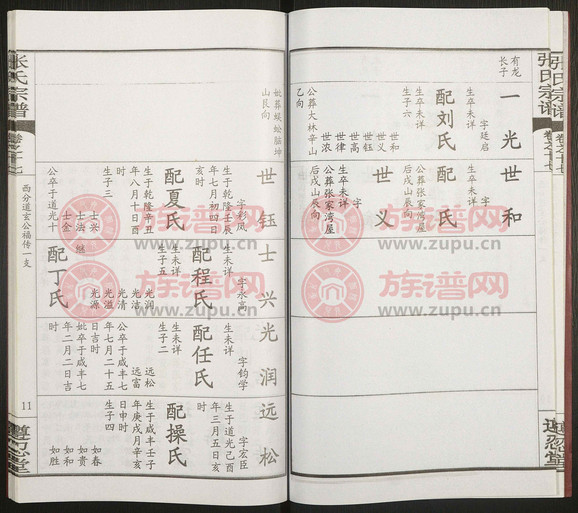 张氏宗谱
卷之十七
有龙
长子
一光
字廷启
生卒未详
配刘氏
生卒未详
生子六
世和
世义
世钰
世高
世律
世浓
公葬大林辛山
乙向
世和
字
生卒未详
配氏
生卒未详
公葬张家湾屋
后戌山辰向
世义
字
生卒未详
公葬张家湾屋
后戌山辰向
妣葬蜈蚣脑坤
山艮向
世钰
字彩凤
生于乾隆壬辰
年七月初四日
亥时
配夏氏
生于乾隆辛丑
年八月十日酉
时
士兴
士法 继
士金
公卒于道光十
士兴
字永高
生卒未详
配程氏
生未详
生子五
光润
光洁
光清
光滋
光源
配丁氏
光润
字钧学
生卒未详
配任氏
生未详
生子二
远松
远富
公卒于咸丰七
年七月二十五
日吉时
妣卒于咸丰七
年二月二日吉
时
远松
字宏臣
生于道光己酉
年三月五日亥
时
配操氏
生于咸丰壬子
年庚戌月辛亥
日申时
生子四
如春
如贵
如和
如胜
张氏宗谱
卷之十七
西分道玄公福传一支
11
族谱网
www.zupu.cn
族谱网
www.zupu.cn
族谱网
www.zupu.cn
族谱网
www.zupu.cn